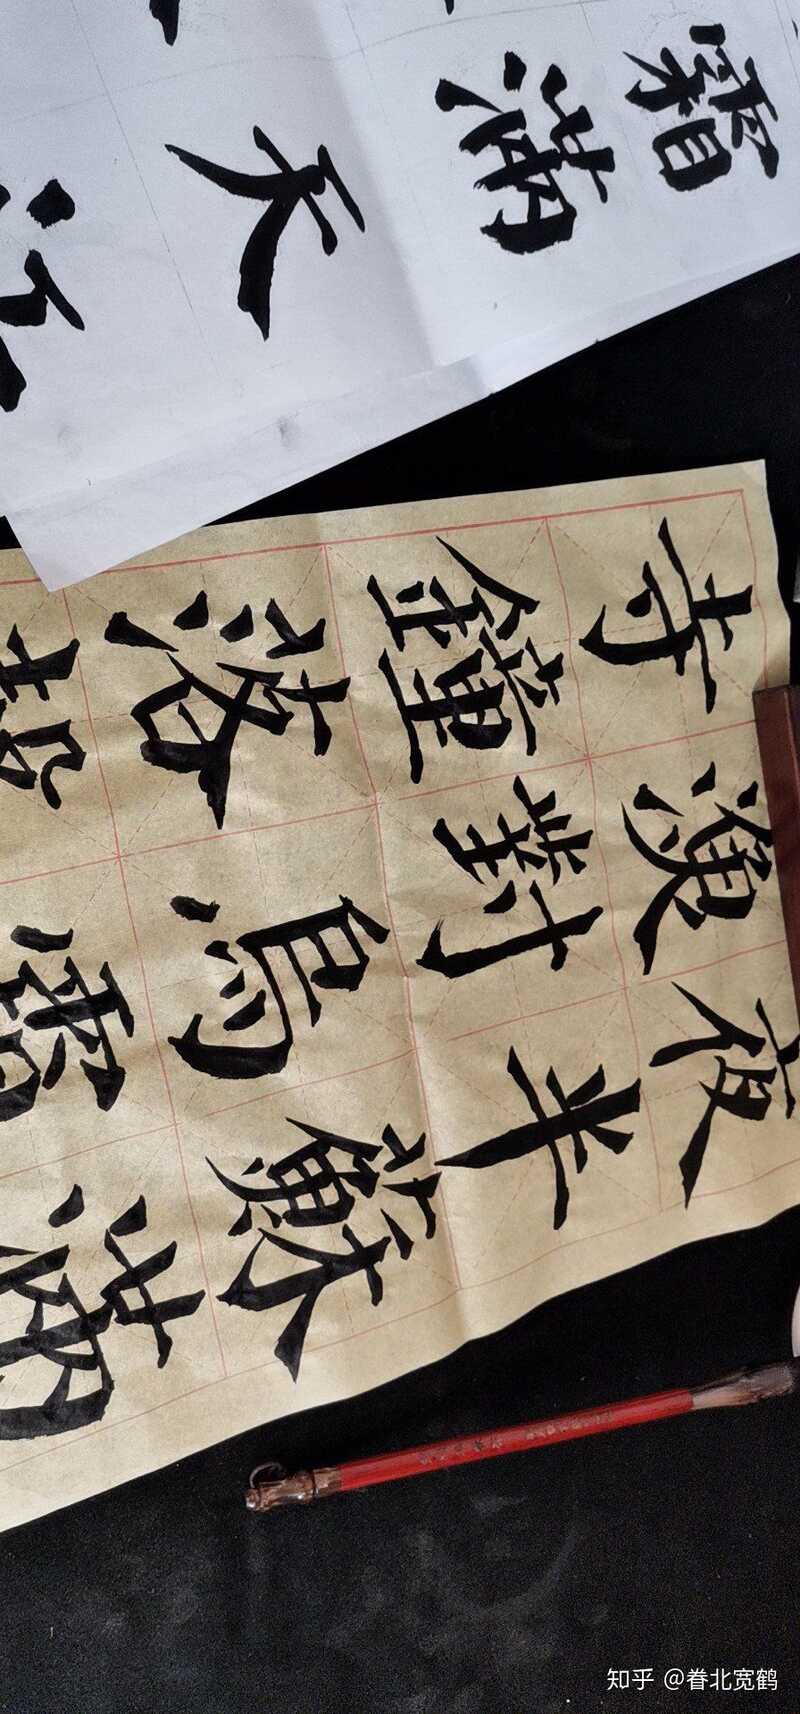 霜滿天江
夜半蘇滿
漁對烏霜
寺鐘落
知乎 @眷北宽鹤